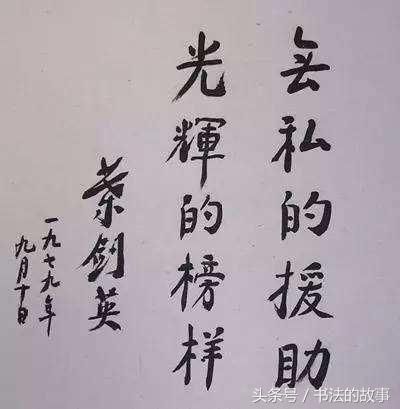 无私的援助
光輝的榜样
葉剑英
一九七九年
九月十日
头条号／书法的故事